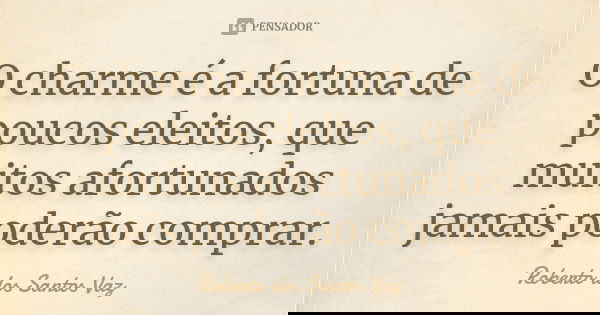 PENSADOR
O charme é a fortuna de
poucos eleitos, que
muitos afortunados
jamais poderão comprar.
Roberto dos Santos Vaz